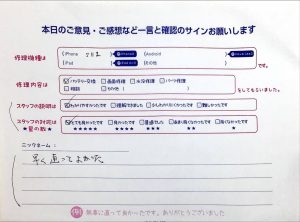 本日のご意見・ご感想など一言と確認のサインお願いします
修理機種は
iPhone SE2
Android
iPad
その他
です。
修理内容は
バッテリー交換 画面修理 水没修理 パーツ修理
相談 その他(
をしてもらいました。
スタッフの説明は
わかりやすかったです 理解できました 少しわかりにくかったです 難しかったです
スタッフの対応は
★星の数★
とても良かったです 良かったです 普通でした あまり良くなかったです 良くなかったです
★★★★★ ★★★★ ★★★ ★★ ★
ニックネーム:
早く直ってよかった
無事に直って良かったです。ありがとうございました